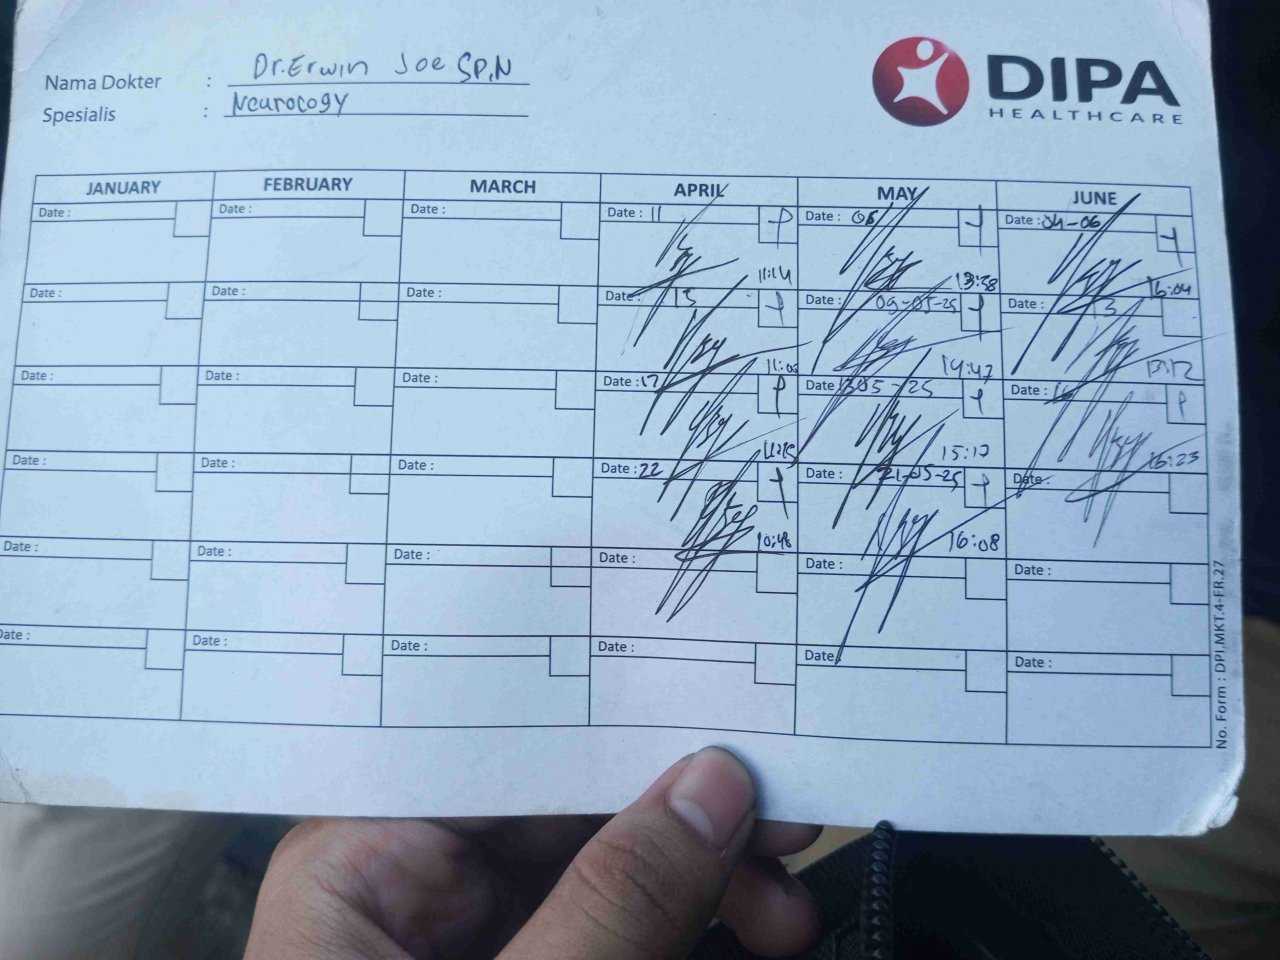 Nama Dokter : Dr. Erwin Joe SP,N
Spesialis : Neurocogy
DIPA
HEALTHCARE
JANUARY FEBRUARY MARCH APRIL MAY JUNE
Date : Date : Date : Date : 11 Date : 06 Date : 04-06
11:14 13:38 16:04
Date : Date : Date : Date : 15 Date : 09-05-25 Date : 13
14:47
Date : Date : Date : Date : 17 Date : 1305-25 Date :
15:17 16:23
Date : Date : Date : Date : 22 Date : 21-05-25 Date :
10:48 16:08
Date : Date : Date : Date : Date : Date :
Date : Date : Date : Date : Date : Date :
No. Form : DPI.MKT.4-FR.27